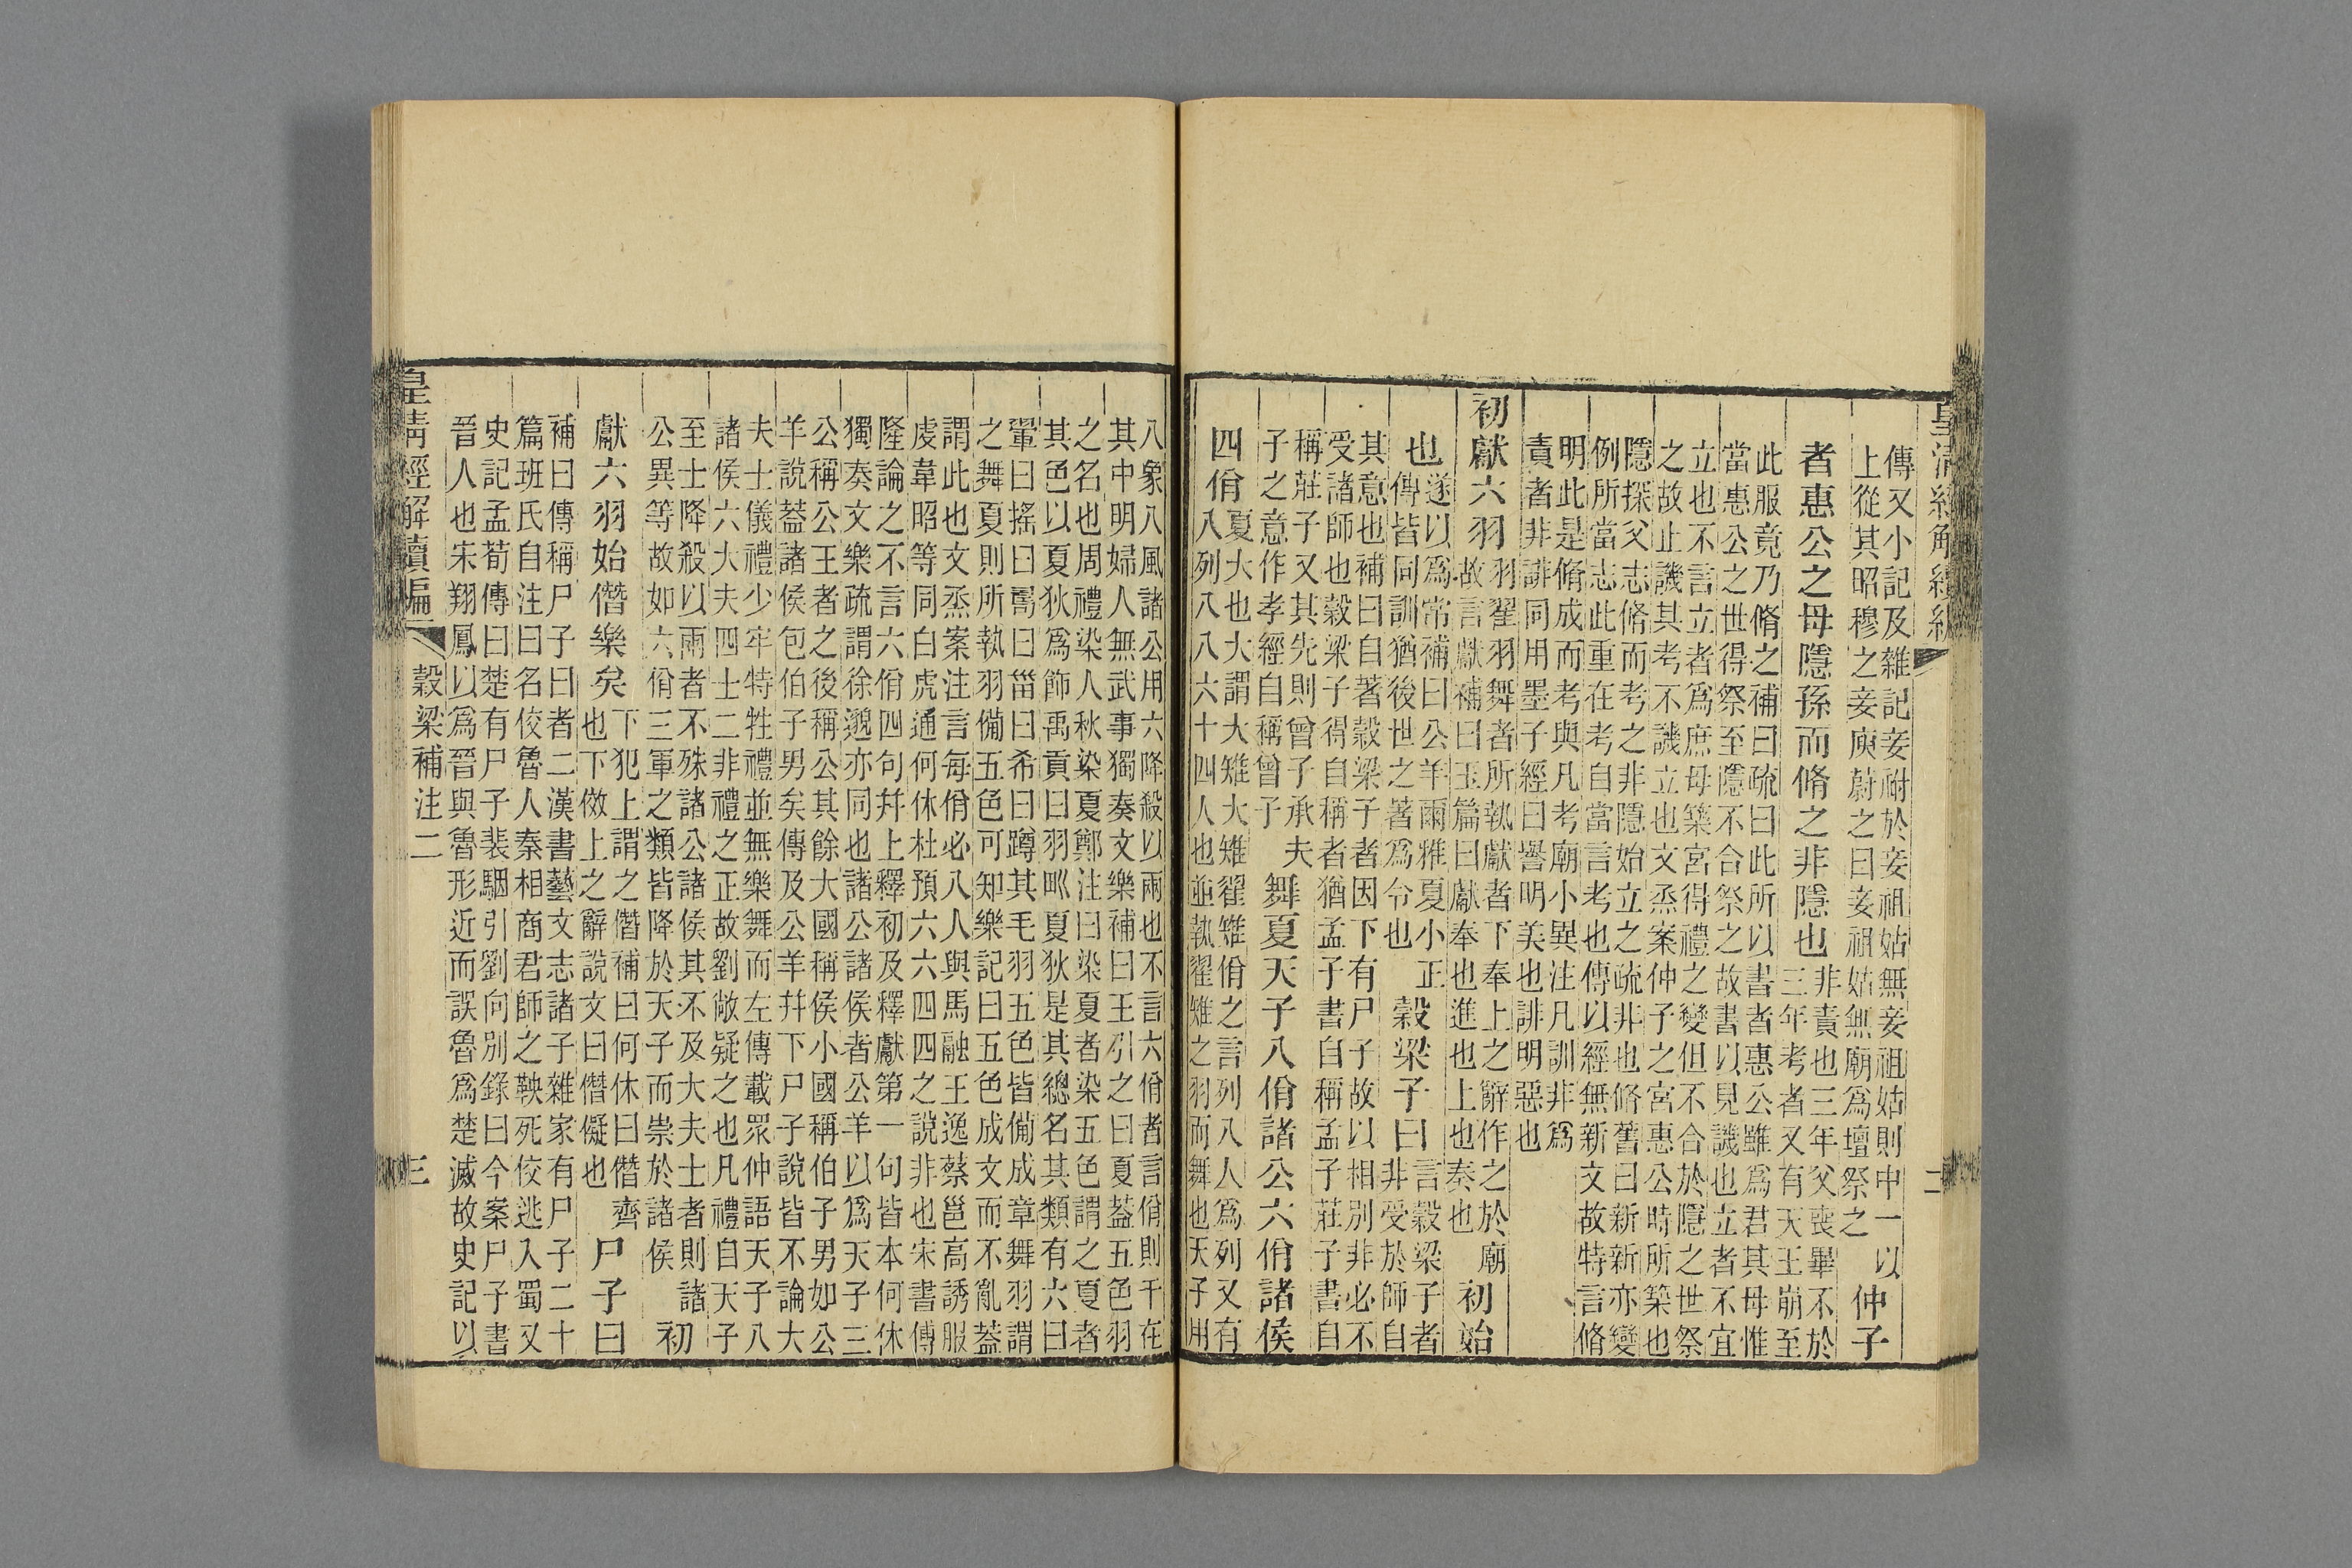 皇清經解續編
二
傳又小記及雜記妾祔於妾祖姑無妾祖姑則中一以
上從其昭穆之妾庾蔚之曰妾祖姑無廟爲壇祭之
仲子
者惠公之母隱孫而脩之非隱也
非責也三年父喪畢不於
三年考者又有天王崩至
此服竟乃脩之補曰疏曰此所以書者惠公雖爲君其母惟
當惠公之世得祭至隱不合祭之故書以見譏也立者不宜
立也不言立者爲庶母築宮得禮之變但不合於隱之世祭
之故止譏其考不譏立也文烝案仲子之宮惠公時所築也
隱探父志脩而考之非隱始立之疏非也脩舊曰新新亦變
例所當志此重在考自當言考也傳以經無新文故特言脩
明此是脩成而考與凡考廟小異注凡訓非爲
責者非誹同用墨子經曰譽明美也誹明惡也
初獻六羽
羽翟羽舞者所執獻者下奉上之辭作之於廟
故言獻補曰玉篇曰獻奉也進也上也奏也
初始
也
遂以爲常補曰公羊爾雅夏小正
傳皆同訓猶後世之著爲令也
穀梁子曰
言穀梁子者
非受於師自
其意也補曰自著穀梁子者因下有尸子故以相別非必不
受諸師也穀梁子得自稱者猶孟子書自稱孟子莊子書自
稱莊子又其先則曾子承夫
子之意作孝經自稱曾子
舞夏天子八佾諸公六佾諸侯
四佾
夏大也大謂大雉大雉翟雉佾之言列八人爲列又有
八列八八六十四人也並執翟雉之羽而舞也天子用
八象八風諸公用六降殺以兩也不言六佾者言佾則干在
其中明婦人無武事獨奏文樂補曰王引之曰夏蓋五色羽
之名也周禮染人秋染夏鄭注曰染夏者染五色謂之夏者
其色以夏狄爲飾禹貢曰羽畎夏狄是其總名其類有六曰
翬曰搖曰䨼曰甾曰希曰蹲其毛羽五色皆備成章舞羽謂
之舞夏則所執羽備五色可知樂記曰五色成文而不亂蓋
謂此也文烝案注言每佾必八人與馬融王逸蔡邕高誘服
虔韋昭等同白虎通何休杜預六六四四之說非也宋書傅
隆論之不言六佾四句并上釋初及釋獻第一句皆本何休
獨奏文樂疏謂徐邈亦同也諸公諸侯者公羊以爲天子三
公稱公王者之後稱公其餘大國稱侯小國稱伯子男如公
羊說蓋諸侯包伯子男矣傳及公羊并下尸子說皆不論大
夫士儀禮少牢特牲禮並無樂舞而左傳載眾仲語天子八
諸侯六大夫四士二非禮之正故劉敞疑之也凡禮自天子
至士降殺以兩者不殊諸公諸侯其不及大夫士者則諸
公異等故如六佾三軍之類皆降於天子而崇於諸侯
初
獻六羽始僭樂矣
下犯上謂之僭補曰何休曰僭齊
也下傚上之辭說文曰僭儗也
尸子曰
補曰傳稱尸子曰者二漢書藝文志諸子雜家有尸子二十
篇班氏自注曰名佼魯人秦相商君師之鞅死佼逃入蜀又
史記孟荀傳曰楚有尸子裴駰引劉向別錄曰今案尸子書
晉人也宋翔鳳以爲晉與魯形近而誤魯爲楚滅故史記以
皇清經解續編
穀梁補注二
三